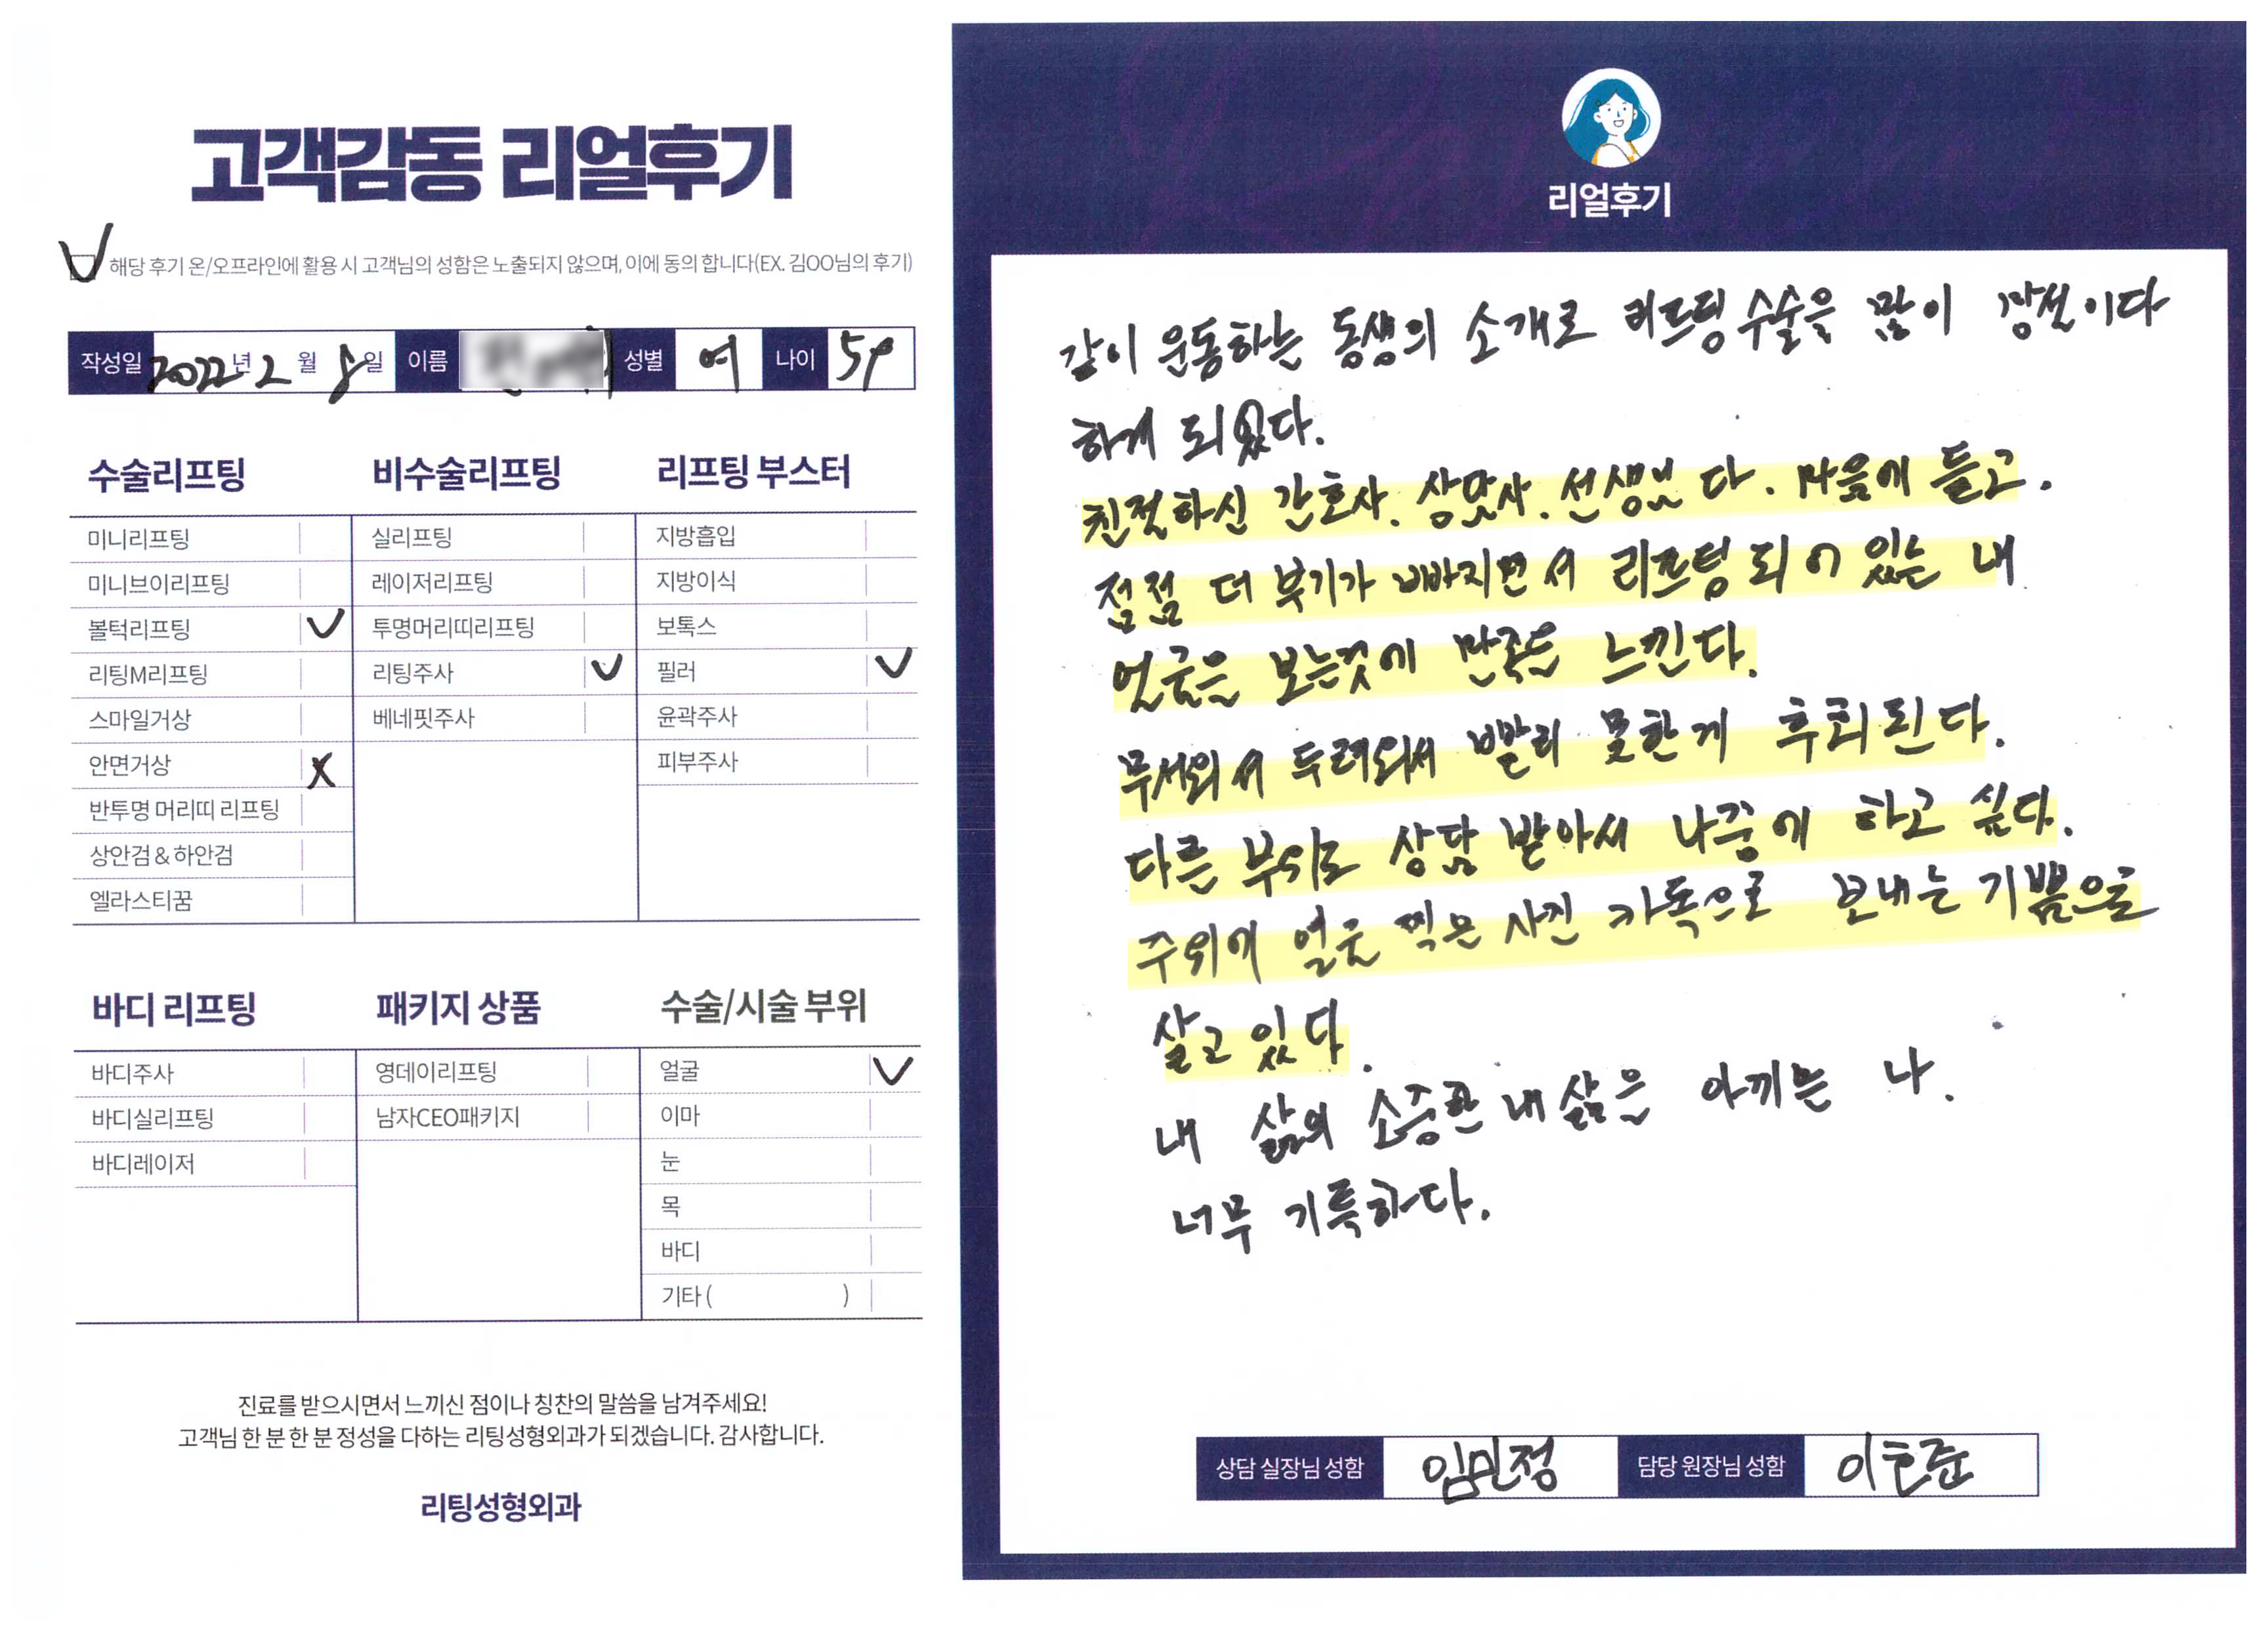 고객감동 리얼후기
해당 후기 온/오프라인에 활용 시 고객님의 성함은 노출되지 않으며, 이에 동의 합니다(EX. 김OO님의 후기)
작성일 2022년 2월 8일 이름 성별 여 나이 59
수술리프팅
미니리프팅
미니브이리프팅
볼턱리프팅 V
리팅M리프팅
스마일거상
안면거상 X
반투명 머리띠 리프팅
상안검 & 하안검
엘라스티꿈
비수술리프팅
실리프팅
레이저리프팅
투명머리띠리프팅
리팅주사 V
베네핏주사
리프팅 부스터
지방흡입
지방이식
보톡스
필러 V
윤곽주사
피부주사
바디 리프팅
바디주사
바디실리프팅
바디레이저
패키지 상품
영데이리프팅
남자CEO패키지
수술/시술 부위
얼굴 V
이마
눈
목
바디
기타 ( )
진료를 받으시면서 느끼신 점이나 칭찬의 말씀을 남겨주세요!
고객님 한 분 한 분 정성을 다하는 리팅성형외과가 되겠습니다. 감사합니다.
리팅성형외과
리얼후기
같이 운동하는 동생의 소개로 리프팅 수술을 많이 망설이다
하게 되었다.
친절하신 간호사. 상담사. 선생님 다. 마음에 들고.
점점 더 부기가 빠지면서 리프팅 되어 있는 내
얼굴을 보는것에 만족을 느낀다.
무서워서 두려워서 빨리 못한게 후회된다.
다른 부위도 상담 받아서 나중에 하고 싶다.
주위에 얼굴 찍은 사진 카톡으로 보내는 기쁨으로
살고 있다.
내 삶의 소중한 내 삶을 아끼는 나.
너무 기특하다.
상담 실장님 성함 임민정 담당 원장님 성함 이호준